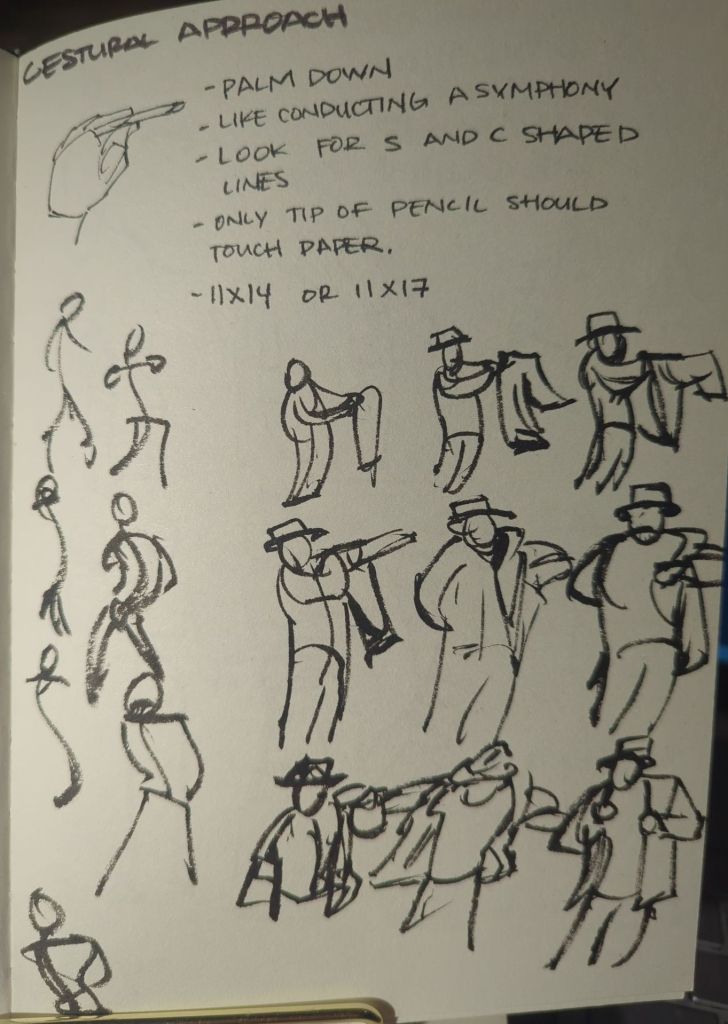 GESTURAL APPROACH
- PALM DOWN
- LIKE CONDUCTING A SYMPHONY
- LOOK FOR S AND C SHAPED
LINES
- ONLY TIP OF PENCIL SHOULD
TOUCH PAPER.
- 11X14 OR 11X17